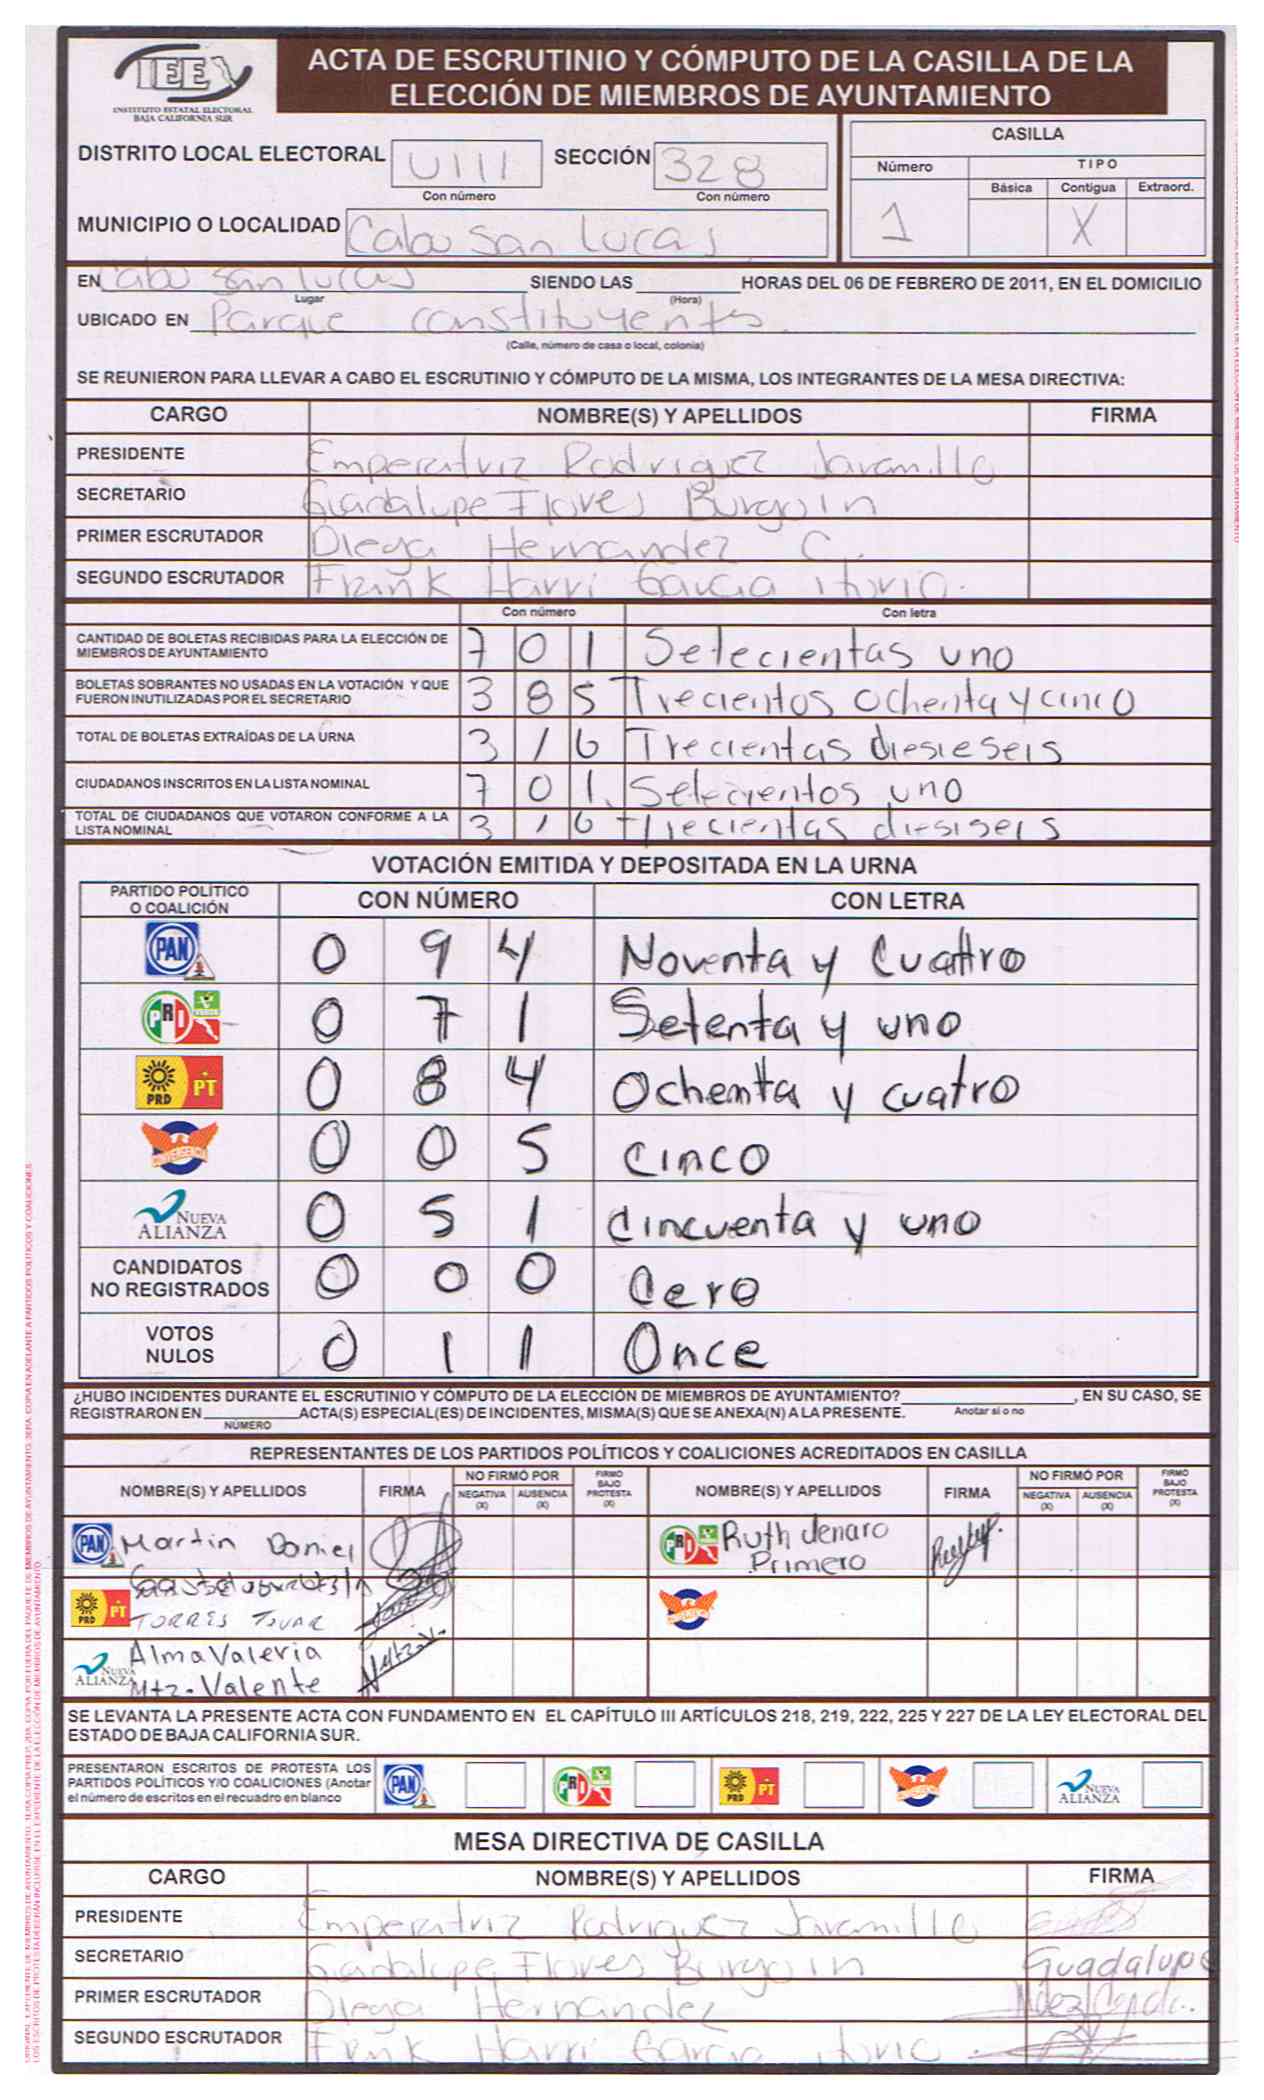 IEEV
INSTITUTO ESTATAL ELECTORAL
BAJA CALIFORNIA SUR
ACTA DE ESCRUTINIO Y CÓMPUTO DE LA CASILLA DE LA
ELECCIÓN DE MIEMBROS DE AYUNTAMIENTO
DISTRITO LOCAL ELECTORAL VIII SECCIÓN 328
Con número Con número
MUNICIPIO O LOCALIDAD Cabo San Lucas
CASILLA
Número TIPO
Básica Contigua Extraord.
1 X
EN Cabo San Lucas SIENDO LAS HORAS DEL 06 DE FEBRERO DE 2011, EN EL DOMICILIO
Lugar (Hora)
UBICADO EN Parque constituyentes.
(Calle, número de casa o local, colonia)
SE REUNIERON PARA LLEVAR A CABO EL ESCRUTINIO Y CÓMPUTO DE LA MISMA, LOS INTEGRANTES DE LA MESA DIRECTIVA:
CARGO NOMBRE(S) Y APELLIDOS FIRMA
PRESIDENTE Emperatriz Rodriguez Jaramillo
SECRETARIO Guadalupe Flores Burgoin
PRIMER ESCRUTADOR Diega Hernandez C.
SEGUNDO ESCRUTADOR Frank Harri Garcia
Con número Con letra
CANTIDAD DE BOLETAS RECIBIDAS PARA LA ELECCIÓN DE
MIEMBROS DE AYUNTAMIENTO 7 0 1 Setecientas uno
BOLETAS SOBRANTES NO USADAS EN LA VOTACIÓN Y QUE
FUERON INUTILIZADAS POR EL SECRETARIO 3 8 5 Trecientos Ochenta y cinco
TOTAL DE BOLETAS EXTRAÍDAS DE LA URNA 3 1 6 Trecientas diesieseis
CIUDADANOS INSCRITOS EN LA LISTA NOMINAL 7 0 1. Setecientos uno
TOTAL DE CIUDADANOS QUE VOTARON CONFORME A LA
LISTA NOMINAL 3 1 6 Trecientas diesiseis
VOTACIÓN EMITIDA Y DEPOSITADA EN LA URNA
PARTIDO POLÍTICO
O COALICIÓN CON NÚMERO CON LETRA
PAN 0 9 4 Noventa y Cuattro
PRI VERDE 0 7 1 Setenta y uno
PRD PT 0 8 4 Ochenta y cuatro
CONVERGENCIA 0 0 5 Cinco
NUEVA ALIANZA 0 5 1 Cincuenta y uno
CANDIDATOS
NO REGISTRADOS 0 0 0 Cero
VOTOS
NULOS 0 1 1 Once
¿HUBO INCIDENTES DURANTE EL ESCRUTINIO Y CÓMPUTO DE LA ELECCIÓN DE MIEMBROS DE AYUNTAMIENTO? , EN SU CASO, SE
REGISTRARON EN ACTA(S) ESPECIAL(ES) DE INCIDENTES, MISMA(S) QUE SE ANEXA(N) A LA PRESENTE. Anotar sí o no
NÚMERO
REPRESENTANTES DE LOS PARTIDOS POLÍTICOS Y COALICIONES ACREDITADOS EN CASILLA
NOMBRE(S) Y APELLIDOS FIRMA NO FIRMÓ POR NEGATIVA (X) AUSENCIA (X) FIRMO BAJO PROTESTA (X) NOMBRE(S) Y APELLIDOS FIRMA NO FIRMÓ POR NEGATIVA (X) AUSENCIA (X) FIRMO BAJO PROTESTA (X)
PAN Martin Daniel PRI Ruth Jenaro
Primero
PRD PT TORRES TOVAR CONVERGENCIA
NUEVA ALIANZA Alma Valeria
Mtz. Valente
SE LEVANTA LA PRESENTE ACTA CON FUNDAMENTO EN EL CAPÍTULO III ARTÍCULOS 218, 219, 222, 225 Y 227 DE LA LEY ELECTORAL DEL
ESTADO DE BAJA CALIFORNIA SUR.
PRESENTARON ESCRITOS DE PROTESTA LOS
PARTIDOS POLÍTICOS Y/O COALICIONES (Anotar
el número de escritos en el recuadro en blanco
PAN PRI PRD PT CONVERGENCIA NUEVA ALIANZA
MESA DIRECTIVA DE CASILLA
CARGO NOMBRE(S) Y APELLIDOS FIRMA
PRESIDENTE Emperatriz Rodriguez Jaramillo
SECRETARIO Guadalupe Flores Burgoin Guadalupe
PRIMER ESCRUTADOR Diega Hernandez
SEGUNDO ESCRUTADOR Frank Harri Garcia